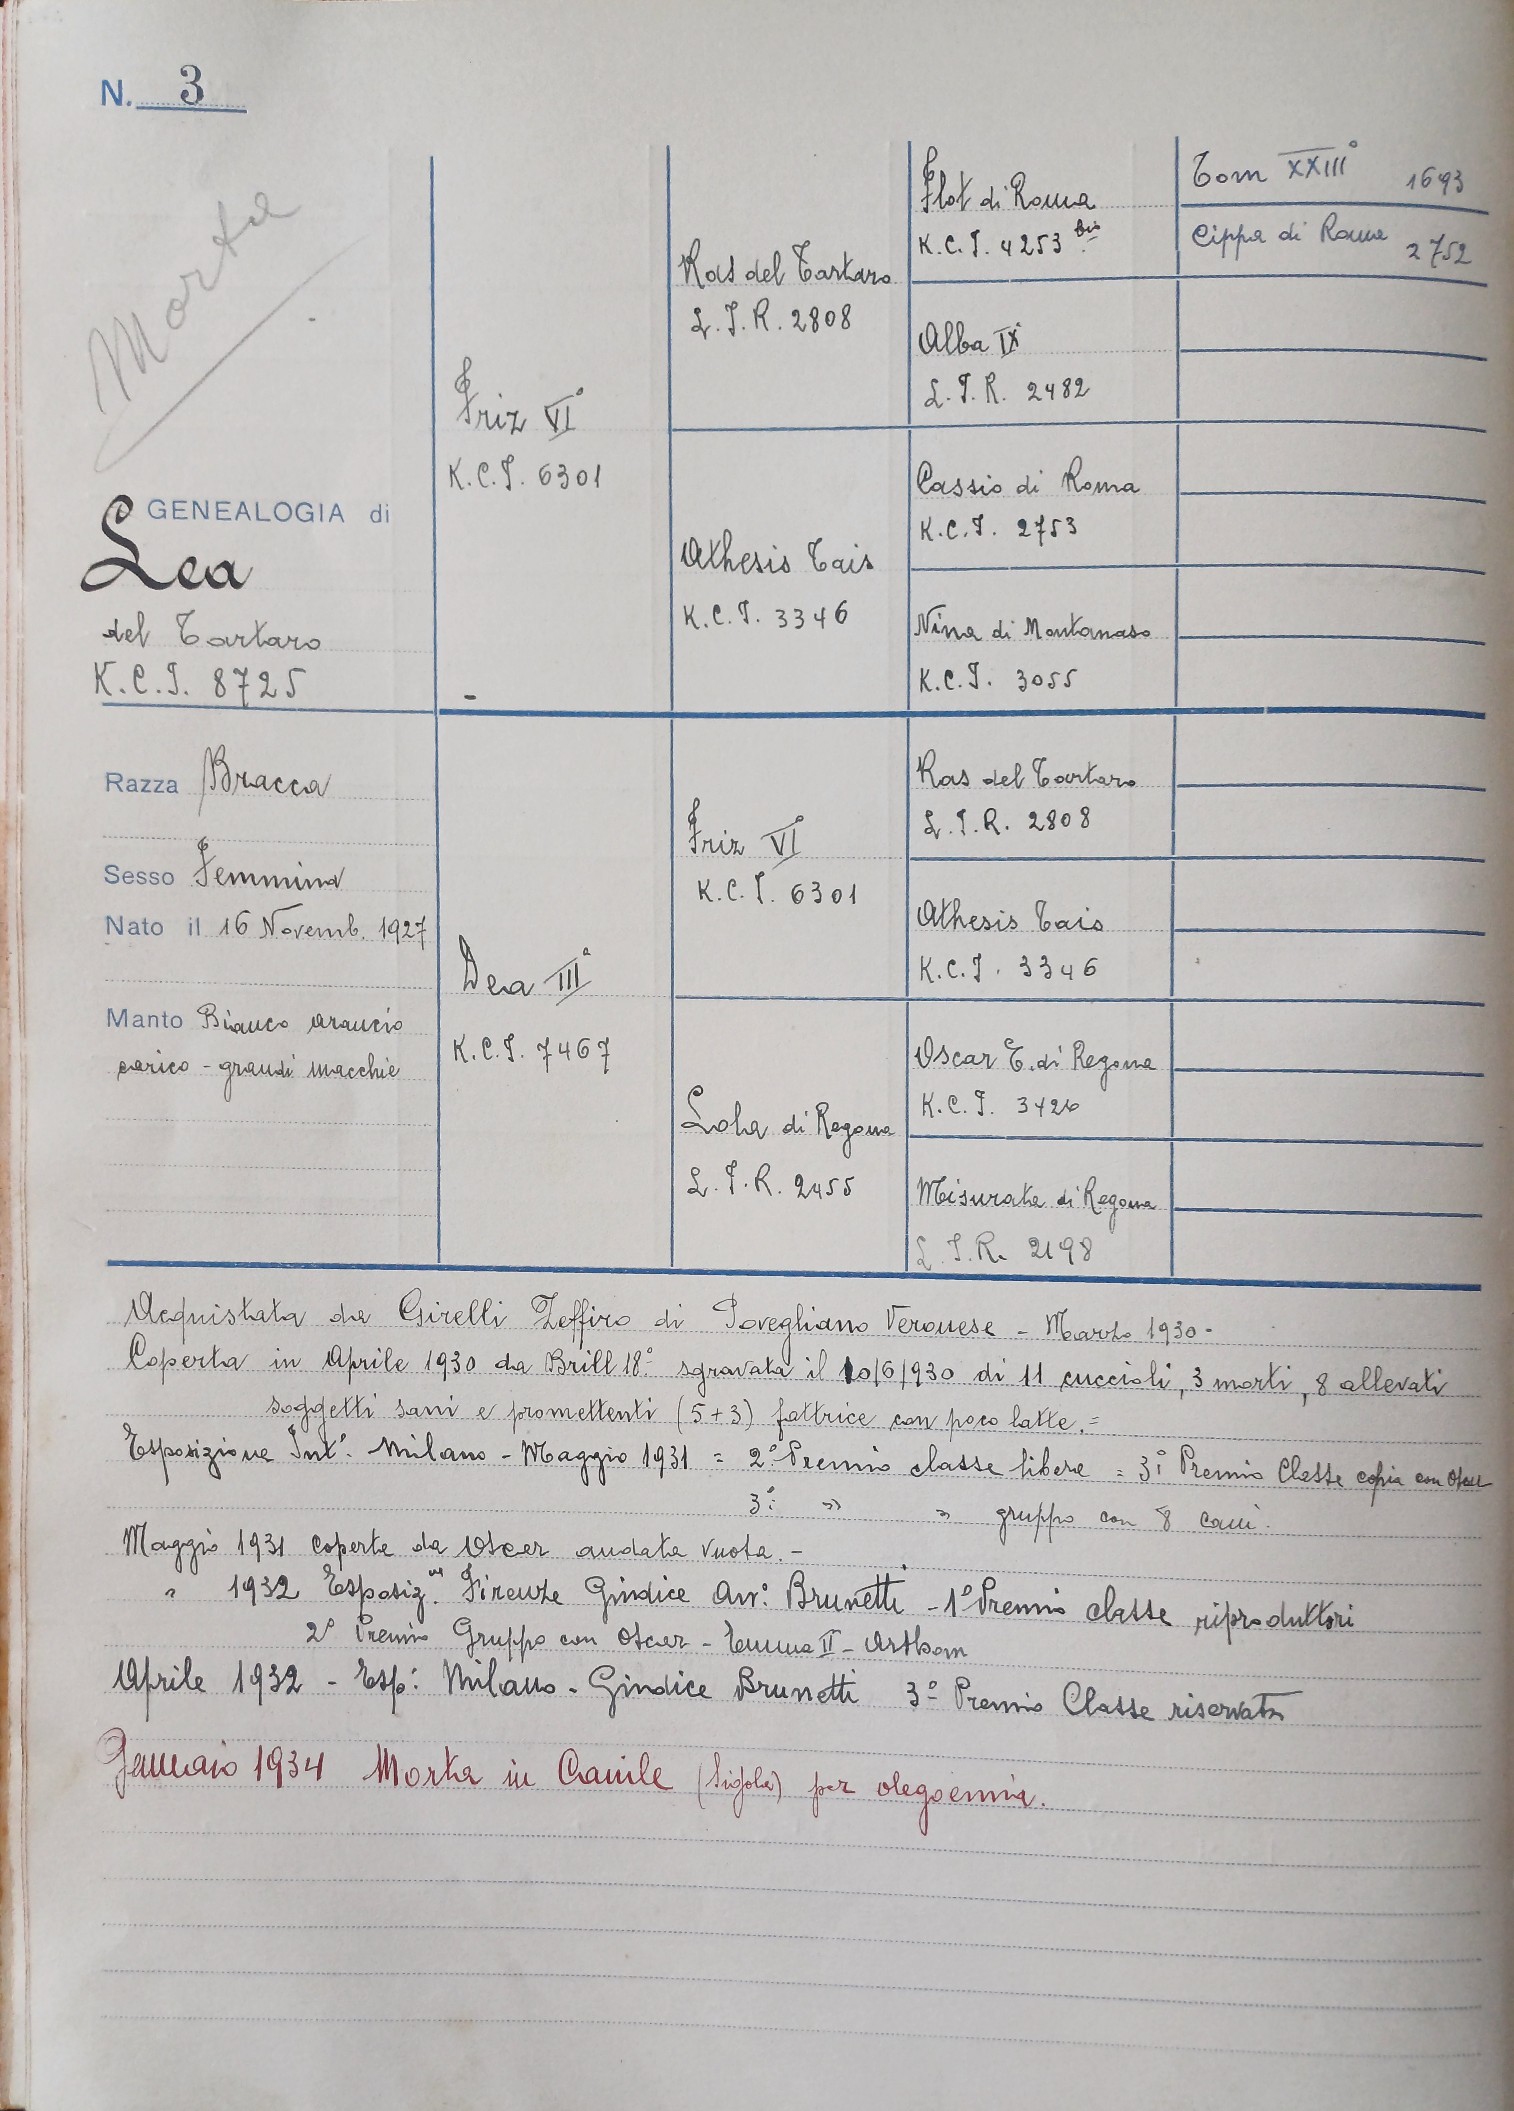 N. 3
Morta
GENEALOGIA di
Lea
del Tartaro
K.C.I. 8725
Razza Bracca
Sesso Femmina
Nato il 16 Novemb. 1927
Manto Bianco arancio
carico - grandi macchie
Friz VI°
K.C.I. 6301
Dea III^a
K.C.I. 7467
Ras del Tartaro
L.I.R. 2808
Athesis Tais
K.C.I. 3346
Friz VI°
K.C.I. 6301
Lola di Regona
L.I.R. 2455
Flot di Roma
K.C.I. 4253 bis
Alba IX^a
L.I.R. 2482
Cassio di Roma
K.C.I. 2753
Nina di Montanaso
K.C.I. 3055
Ras del Tartaro
L.I.R. 2808
Athesis Tais
K.C.I. 3346
Oscar T. di Regona
K.C.I. 3426
Misurata di Regona
L.I.R. 2198
Tom XXIII° 1693
Cippa di Roma 2752
Acquistata da Girelli Zeffiro di Povegliano Veronese - Marzo 1930 -
Coperta in Aprile 1930 da Brill 18° sgravata il 10/6/930 di 11 cuccioli, 3 morti, 8 allevati
soggetti sani e promettenti (5+3) fattrice con poco latte. =
Esposizione Int. Milano - Maggio 1931 = 2° Premio classe libere = 3° Premio Classe copia con Oscar
3° " " gruppo con 8 cani.
Maggio 1931 coperta da Oscar andata vuota. -
" 1932 Esposiz. Firenze Giudice Avv. Brunetti - 1° Premio classe riproduttori
2° Premio Gruppo con Oscar - Emma II -
Aprile 1932 - Esp: Milano - Giudice Brunetti 3° Premio Classe riservata
Gennaio 1934 Morta in Canile (Sigola) per